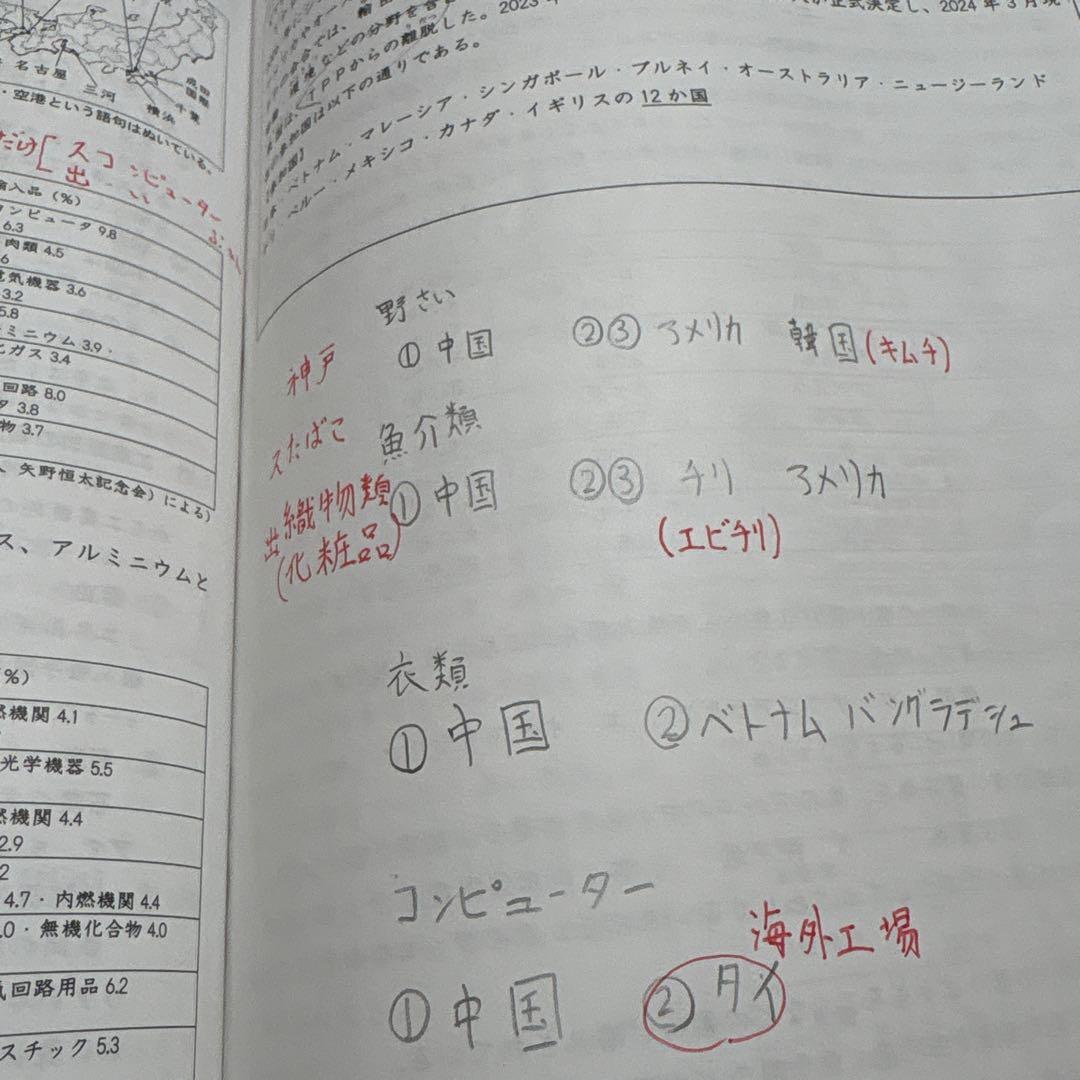 名古屋
三河
横浜
千葉
成田国際
・空港という語句はぬいている。
だけ[スコンピューター
出
輸入品(%)
コンピュータ 9.8
6.3
肉類 4.5
6
電気機器 3.6
3.2
5.8
ルミニウム 3.9・
ガス 3.4
回路 8.0
タ 3.8
物 3.7
矢野恒太記念会)による)
ス、アルミニウムと
(%)
燃機関 4.1
光学機器 5.5
燃機関 4.4
2.9
2
4.7・内燃機関 4.4
.0・無機化合物 4.0
気回路用品 6.2
スチック 5.3
が正式決定し、2024年3月現
などの分野を含
TPPからの離脱した。2023年
参加国は以下の通りである。
【参加国】
ベトナム・マレーシア・シンガポール・ブルネイ・オーストラリア・ニュージーランド
ペルー・メキシコ・カナダ・イギリスの12か国
野さい
①中国 ②③アメリカ 韓国(キムチ)
神戸
スたばこ
出織物類
(化粧品)
魚介類
①中国 ②③ チリ アメリカ
(エビチリ)
衣類
①中国 ②ベトナム バングラデシュ
コンピューター
海外工場
①中国 ②タイ